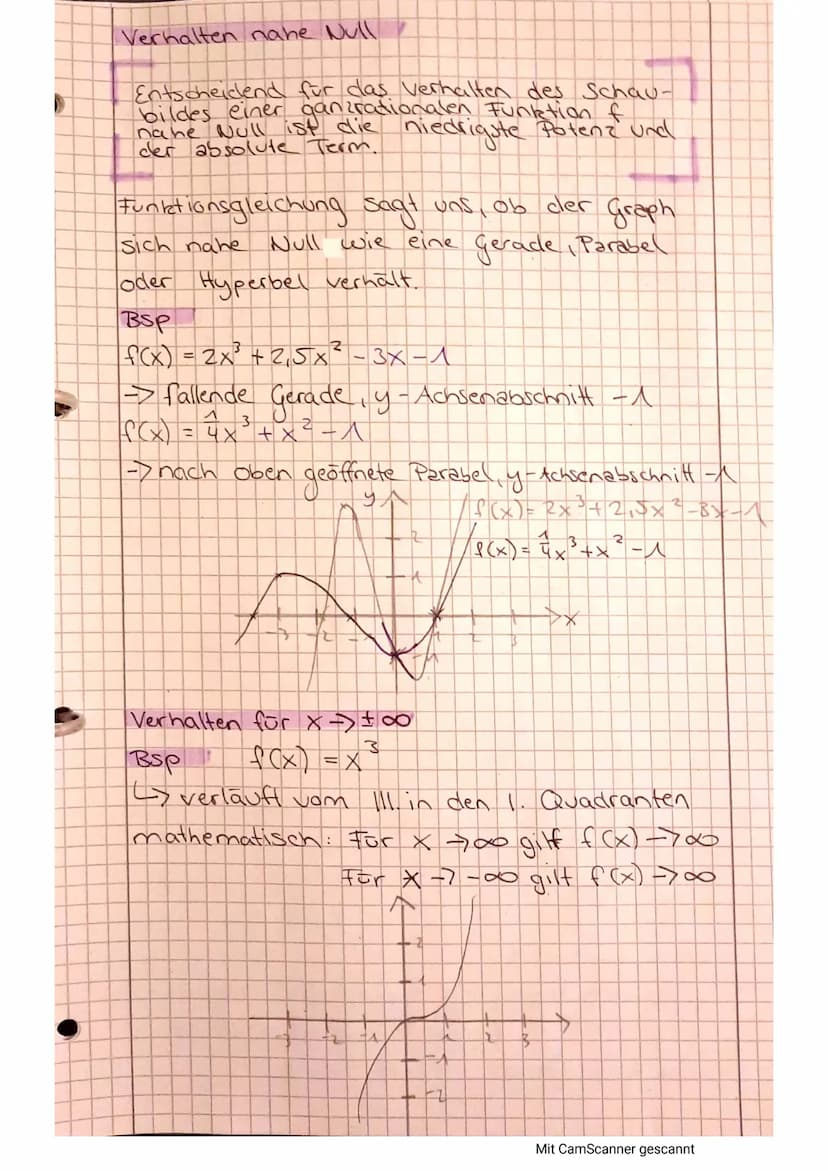 Verhalten nahe Null
Entscheidend für das Verhalten des Schau-
bildes einer ganzrationalen Funktion f
nahe Null ist die niedrigste Potenz und
der absolute Term.
Funktionsgleichung sagt uns, ob der Graph
sich nahe Null wie eine Gerade, Parabel
oder Hyperbel verhält.
Bsp
f(x) = 2x³ + 2,5x² - 3x - 1
-> fallende Gerade, y-Achsenabschnitt -1
f(x) = 1/4x³ + x² - 1
-> nach oben geöffnete Parabel, y-Achsenabschnitt -1
y
f(x) = 2x³ + 2,5x² - 3x - 1
2
f(x) = 1/4x³ + x² - 1
1
x
-3 -2 2 3
-1
Verhalten für x -> ± ∞
Bsp f(x) = x³
↳ verläuft vom III. in den I. Quadranten
mathematisch: Für x -> ∞ gilt f(x) -> ∞
Für x -> -∞ gilt f(x) -> ∞
2
1
-3 -2 -1 1 2 3
-1
-2
Mit CamScanner gescannt